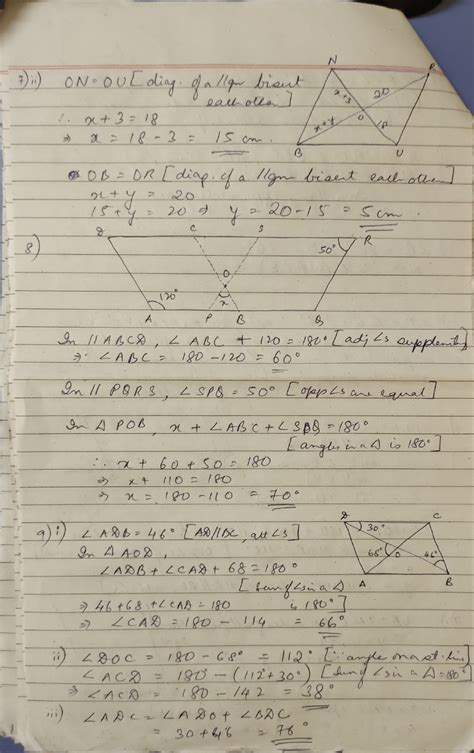 7)ii) ON=OU [diag. of a llgm bisect
each other]
∴ x+3=18
⇒ x = 18-3 = 15 cm.
N
R
x+3
20
O
x+y
18
B
U
OB = OR [diag. of a llgm bisect each other]
x+y = 20
15+y = 20 ⇒ y = 20-15 = 5 cm
8)
D
C
S
R
50°
O
120°
x
A
P
B
Q
In ||ABCD, ∠ABC + 120 = 180° [adj ∠s supplemtry]
⇒ ∠ABC = 180-120 = 60°
In || PQRS, ∠SPQ = 50° [opp ∠s are equal]
In Δ POB, x + ∠ABC + ∠SPQ = 180°
[angles in a Δ is 180°]
∴ x + 60 + 50 = 180
⇒ x + 110 = 180
⇒ x = 180-110 = 70°
9) i) ∠ADB = 46° [AD||BC, alt ∠s]
In Δ AOD,
∠ADB + ∠CAD + 68 = 180°
[Sum of ∠s in a Δ
⇒ 46+68+∠CAD = 180 is 180°]
⇒ ∠CAD = 180 - 114 = 66°
D
C
30°
68°
O
46°
A
B
ii) ∠DOC = 180-68° = 112° [∵ angle on a st. line]
∠ACD = 180-(112+30°) [Sum of ∠s in a Δ=180°]
⇒ ∠ACD = 180 - 142 = 38°
iii) ∠ADC = ∠ADO + ∠BDC
= 30+46 = 76°